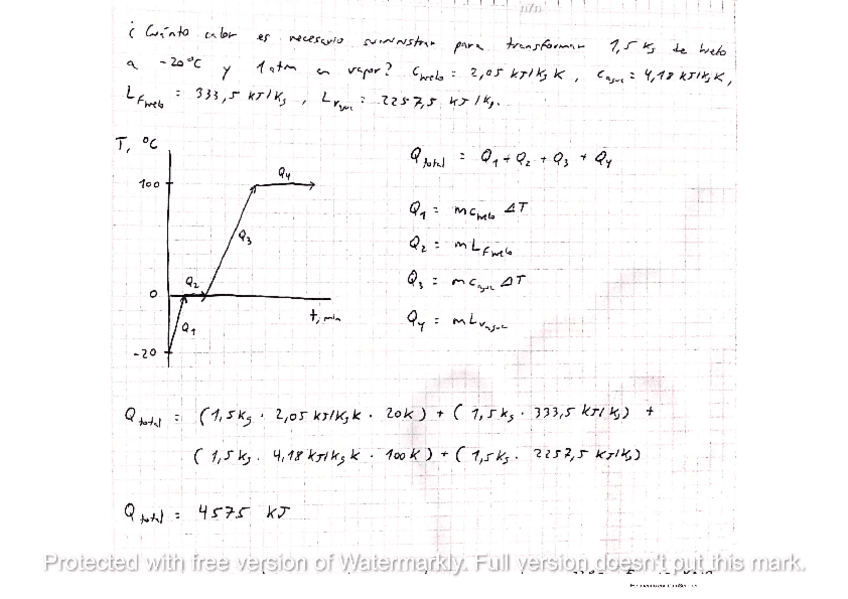 ¿Cuánto calor es necesario suministrar para transformar 1,5 Kg de hielo
a -20°C y 1 atm en vapor? C hielo = 2,05 KJ/Kg K, C agua = 4,18 KJ/Kg K,
L F hielo = 333,5 KJ/Kg, L V agua = 2257,5 KJ/Kg.
T, °C
100
0
-20
Q1
Q2
Q3
Q4
t, min
Q total = Q1 + Q2 + Q3 + Q4
Q1 = m C hielo ΔT
Q2 = m L F hielo
Q3 = m C agua ΔT
Q4 = m L V agua
Q total = (1,5 Kg · 2,05 KJ/Kg K · 20K) + (1,5 Kg · 333,5 KJ/Kg) +
(1,5 Kg · 4,18 KJ/Kg K · 100 K) + (1,5 Kg · 2257,5 KJ/Kg)
Q total = 4575 KJ
Protected with free version of Watermarkly. Full version doesn't put this mark.